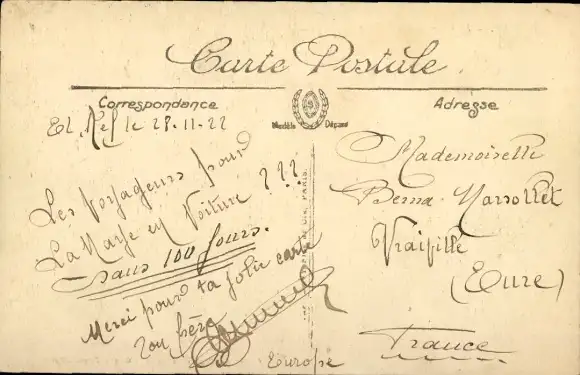 Carte Postale
Correspondance
Adresse
Modèle Déposé
El Kef le 28-11-22
Les Voyageurs pour
La Marse en Voiture ???
dans 100 jours.
Merci pour ta jolie carte
Ton frère
Mademoiselle
Berna Marrottet
Vraiville
(Eure)
France
Europe
PARIS